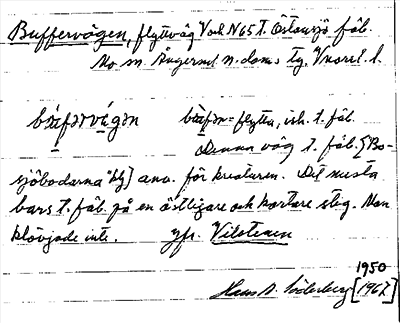 Buffervägen, flyttväg V och N 65 t. Östansjö fäb.
Mo sn. Ångerml. n. doms tg. Vnorrl. l.
bùfərvägən bùfən = flytta, vb. t. fäb.
Denna väg t. fäb. [Bo-
sjöbodarna] anv. för kreaturen. Det mesta
bars t. fäb. på en östligare och kortare stig. Man
klövjade inte. Jfr. Vilstenen
1950
Hans A. Söderberg [1967]